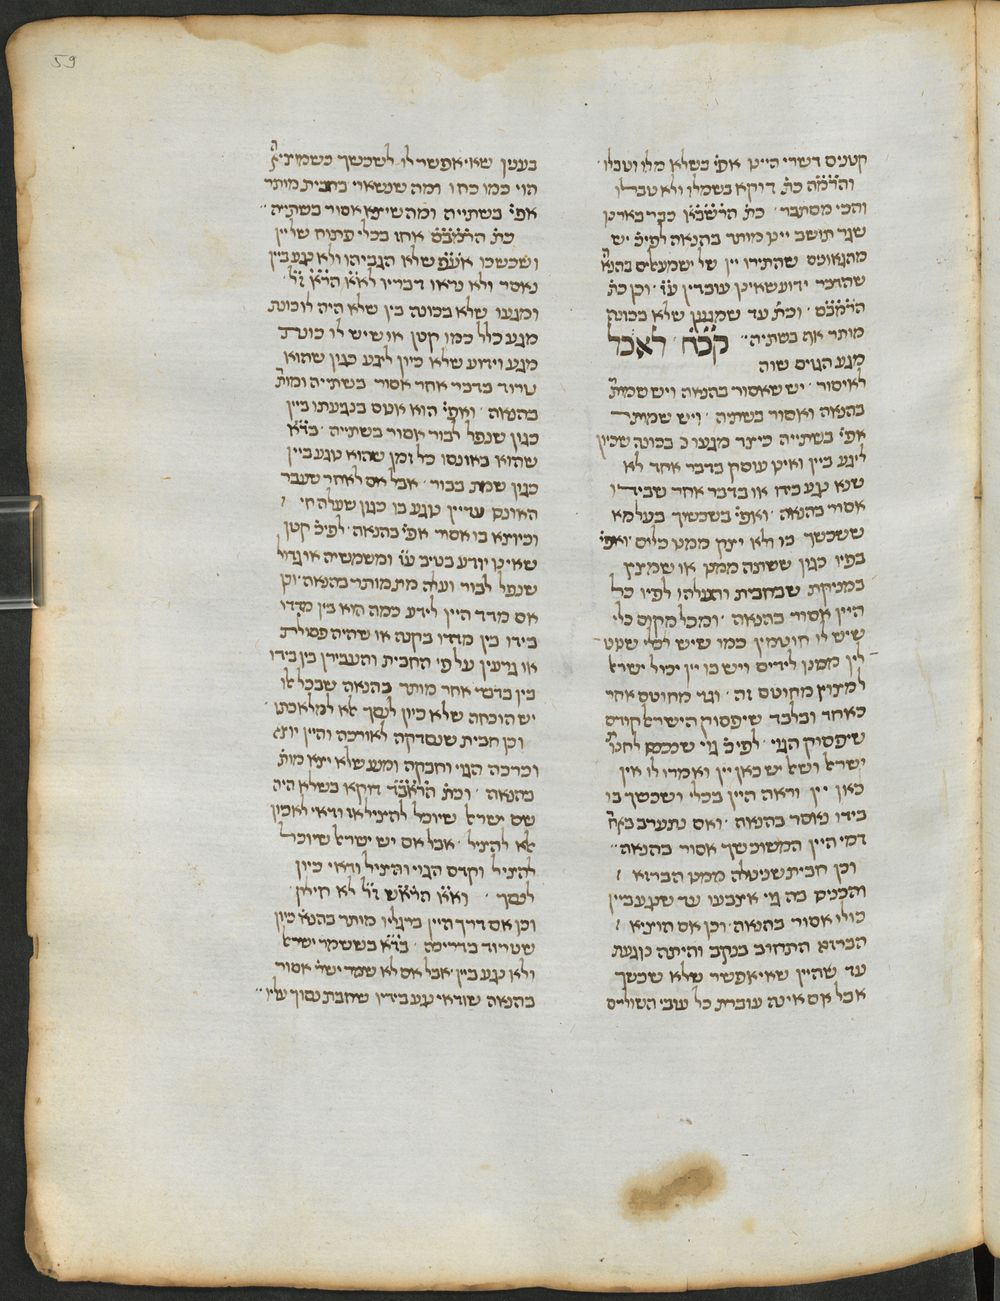 59
קטנים דשרי היינו אפי׳ בשלא מלו וטבלו
והר״מה כת׳ דוקא בשמלו ולא טבלו
והכי מסתבר׳ כת׳ הרשב״א כבר בארנו
שגר תושב יינו מותר בהנאה לפיכ׳ יש
מהגאונים שהתירו יין של ישמעלים בהנא׳
שהדבר ידוע שאינן עובדין ע״ז׳ וכן כת׳
הרמב״ם׳ וכת׳ עד שמגען שלא בכונה
מותר אף בשתיה״ קכ״ח לא כל
מגע הגוים שוה
לאיסור׳ יש שאסור בהנאה ויש שמות׳
בהנאה ואסור בשתיה׳ ויש שמותר
אפי׳ בשתייה כיצד מגעו כ׳ בכונה שכוין
ליגע ביין ואינו עוסק בדבר אחר לא
שנא נגע בידו או בדבר אחר שבידו
אסור בהנאה׳ ואפי׳ בשכשוך בעלמא
ששכשך בו ולא יצק ממנו כלום׳ ואפי׳
בפיו כגון ששתה ממנו או שמצץ
במניקת שבחבית והעלהו לפיו כל
היין אסור בהנאה׳ ומכל מקום כלי
שיש לו חוטמין כמו שיש לכלי שנוט
לין ממנו לידים ויש בו יין יכול ישרא׳
למצוץ מחוטם זה׳ וגוי מחוטם אחר
כאחד ובלבד שיפסוק הישראל קודם
שיפסוק הגוי׳ לפיכ׳ גוי שנכנס לחנו׳
ישרא׳ ושאל יש כאן יין ואמרו לו אין
כאן יין וראה היין בכלי ושכשך בו
בידו נאסר בהנאה׳ ואם נתערב באח׳
דמי היין המשוכשך אסור בהנאה״
וכן חבית שניטלה ממנו הברזא
והכניס בה גוי אצבעו עד שנגע ביין
כולו אסור בהנאה׳ וכן אם הוציא
הברזא התחוב בנקב והיתה נוגעת
עד שהיין שאי אפשר שלא שכשך
אבל אם אינה עוברת כל עובי השולים
בענין שאי אפשר לו לשכשך כשמוציא׳
הוי כמו כחו ומה שנשאר בחבית מותר
אפי׳ בשתייה ומה שיצא אסור בשתיה״
כת׳ הרמב״ם אחז בכלי פתוח של יין
ושכשכו אע״פ שלא הגביהו ולא נגע ביין
נאסר ולא נראו דבריו לא״א הרא״ש ז״ל
ומגעו שלא בכונה בין שלא היה לו כונת
מגע כלל כמו קטן או שיש לו כונת
מגע וידוע שלא כיון ליגע כגון שהוא
טרוד בדבר אחר אסור בשתייה ומות׳
בהנאה׳ ואפי׳ הוא אנוס בנגיעתו ביין
כגון שנפל לבור אסור בשתייה׳ בד״א
שהוא באונסו כל זמן שהוא נוגע ביין
כגון שמת בבור׳ אבל אם לאחר שעבר
האונס עדיין נוגע בו כגון שעלה חי
וכיוצא בו אסור אפי׳ בהנאה׳ לפיכ׳ קטן
שאינו יודע בטיב ע״ז ומשמשיה או גדול
שנפל לבור ועלה מת מותר בהנאה׳ וכן
אם מדד היין לידע כמה הוא בין מדדו
בידו בין מדדו בקנה או שהיה פסולת
או גרעין על פי החבית והעבירן בין בידו
בין בדבר אחר מותר בהנאה שבכל אלו
יש הוכחה שלא כיון לנסך אלא למלאכתו׳
וכן חבית שנסדקה לאורכה והיין יוצא
וכרכה הגוי וחבקה ומנע שלא יצא מות׳
בהנאה׳ וכת׳ הראב״ד דוקא בשלא היה
שם ישרא׳ שיוכל להצילו אז ודאי לא כוון
אלא להציל׳ אבל אם יש ישרא׳ שיוכל
להציל וקדם הגוי והציל ודאי כיון
לנסך׳ וא״א הרא״ש ז״ל לא חילק׳
וכן אם דרך היין ברגליו מותר בהנא׳ כיון
שטרוד בדריכה׳ בד״א בששמר ישרא׳
ולא נגע ביין׳ אבל אם לא שמר ישר׳ אסור
בהנאה שודאי נגע בידיו שחבת נסוך עליו״